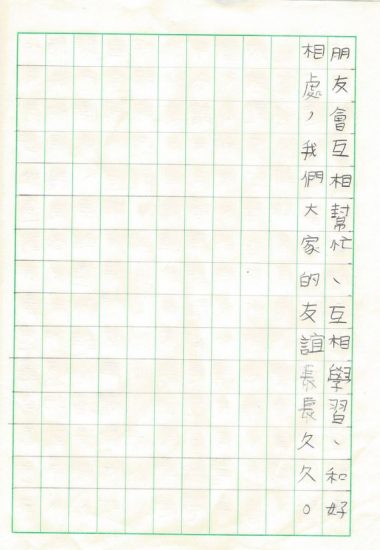 朋友會互相幫忙、互相學習、和好
相處，我們大家的友誼長長久久。